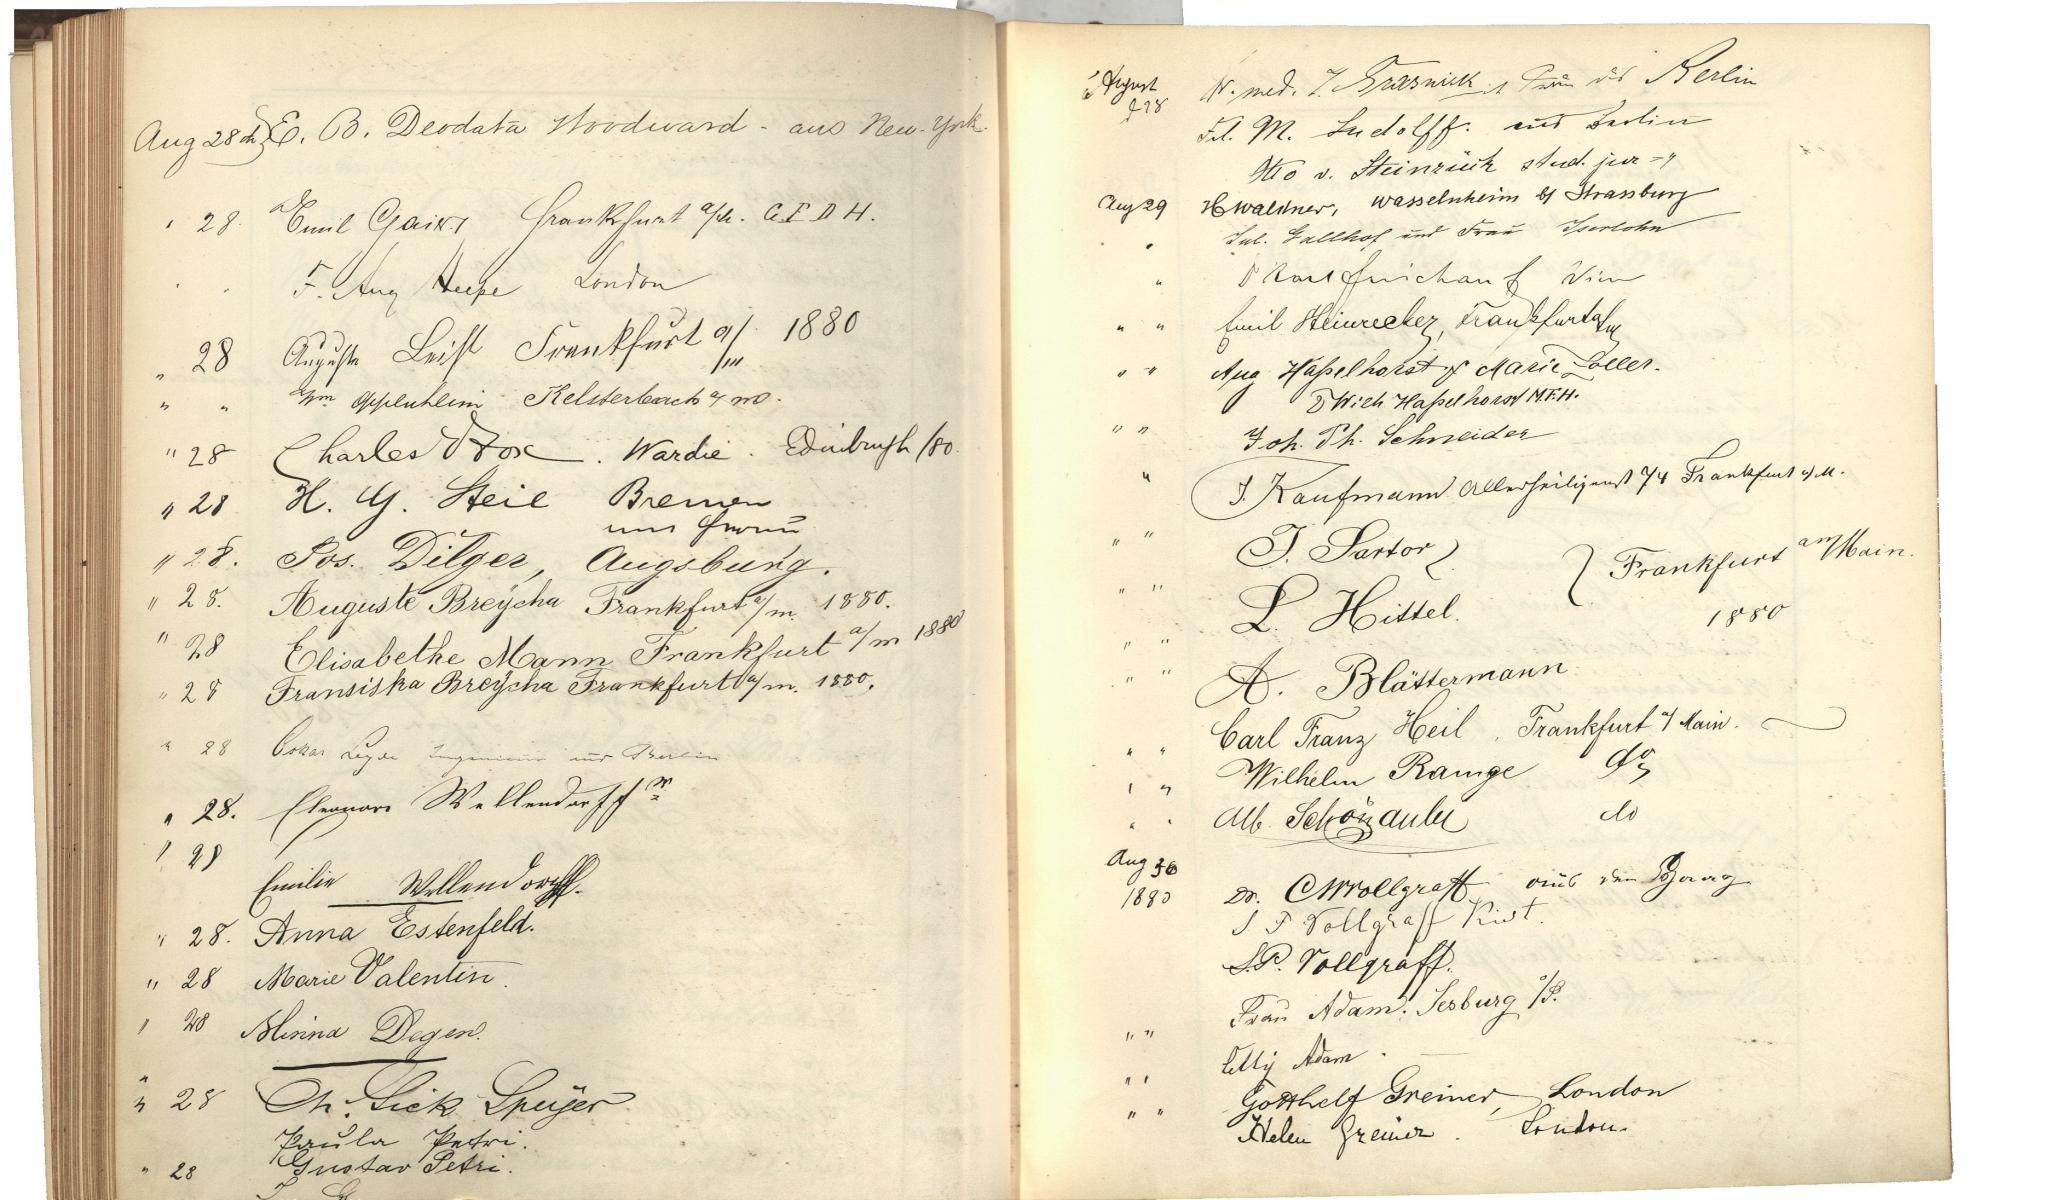 Aug 28th E. B. Deodata Woodward - aus New-York.
" 28. Emil Frankfurt a/M. G F D H.
" " F. Aug Heepe London
" 28 Auguste Leist Frankfurt a/m 1880
" " Oppenheim Kelsterbach a/m.
" 28 Charles Wardie. Edinburgh /80.
" 28 H. G. Steil Bremen
und Frau
" 28. Jos. Dilger, Augsburg.
" 28. Auguste Breÿcha Frankfurt a/m. 1880.
" 28 Elisabethe Mann Frankfurt a/m 1880
" 28 Fransiska Breÿcha Frankfurt a/m. 1880.
" 28 Oskar Ingenieur aus Berlin
" 28. Eleonore Wellendorff
" 28
Emilie Wellendorff.
" 28. Anna Estenfeld.
" 28 Marie Valentin.
" 28 Minna Degen.
" 28 Ch. Sick Speÿer
Paula Petri.
" 28 Gustav Petri.
August Dr. med. J. Frau aus Berlin
28 Frl. M. Ludolff. aus Berlin
Otto v. Steinrück stud. jur.
Aug 29 H Waldner, Wasselnheim b/ Strassburg
" Jul. Gallhof und Frau Iserlohn
" Dr Karl Wien
" " Emil Steinrecker, Frankfurt a/m
" " Aug Haßelhorst & Marie Zoller.
Haßelhorst M.F.H.
" " Joh. Ph. Schneider
" J. Kaufmann Allerheiligenst 74 Frankfurt a/M.
" " J. Sartor } Frankfurt am/Main.
" " L. Hittel. 1880
" " A. Blättermann
" " Carl Franz Heil, Frankfurt a/ Main.
" " Wilhelm Ramge do
" " Alb. do
Aug 30 Dr. C W Vollgraff aus den Haag
1880 J F Vollgraff
S.P. Vollgraff.
" " Frau Adam.
" " Elly Adam.
" " Gotthelf Greiner, London
Helen Greiner. London.